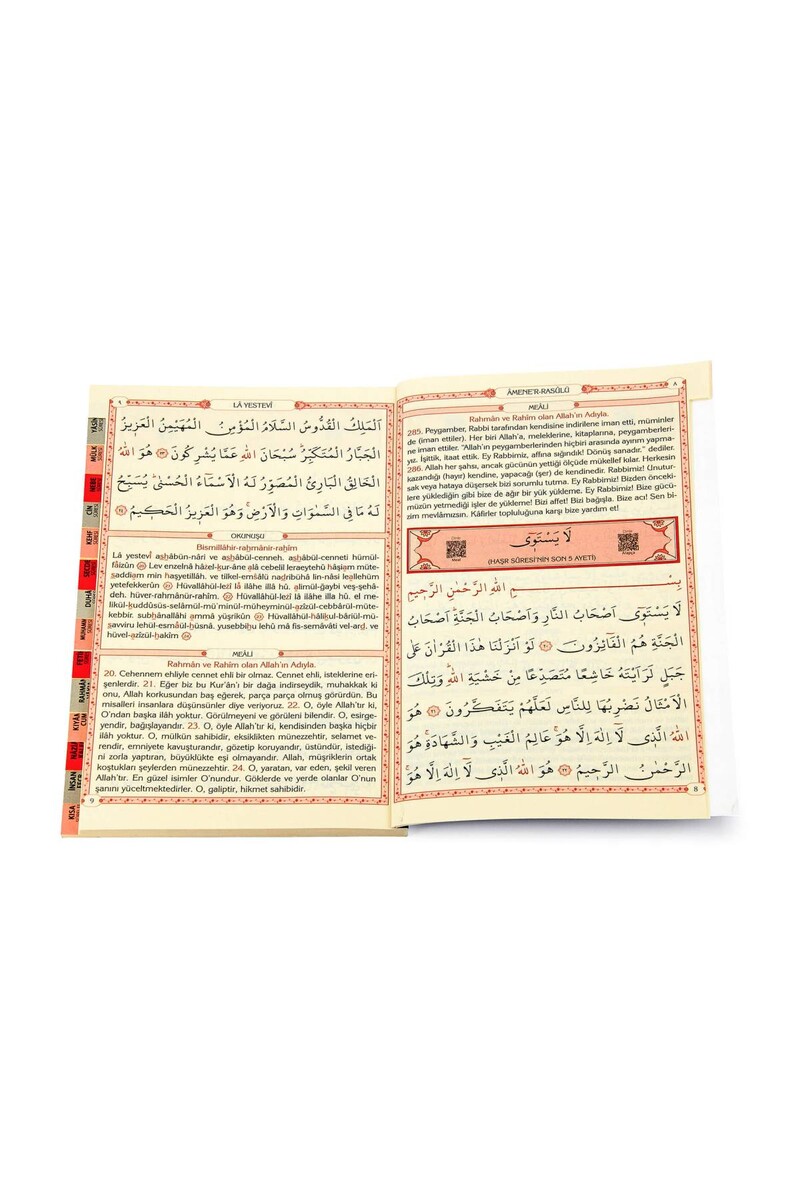 ٨
ÂMENE'R-RASÛLÜ
MEÂLİ
Rahmân ve Rahîm olan Allah'ın Adıyla.
285. Peygamber, Rabbi tarafından kendisine indirilene iman etti, müminler
de (iman ettiler). Her biri Allah'a, meleklerine, kitaplarına, peygamberleri-
ne iman ettiler. "Allah'ın peygamberlerinden hiçbiri arasında ayırım yapma-
yız. İşittik, itaat ettik. Ey Rabbimiz, affına sığındık! Dönüş sanadır." dediler.
286. Allah her şahsı, ancak gücünün yettiği ölçüde mükellef kılar. Herkesin
kazandığı (hayır) kendine, yapacağı (şer) de kendinedir. Rabbimiz! Unutur-
sak veya hataya düşersek bizi sorumlu tutma. Ey Rabbimiz! Bizden önceki-
lere yüklediğin gibi bize de ağır bir yük yükleme. Ey Rabbimiz! Bize gücü-
müzün yetmediği işler de yükleme! Bizi affet! Bizi bağışla. Bize acı! Sen bi-
zim mevlâmızsın. Kâfirler topluluğuna karşı bize yardım et!
لَا يَسْتَوٰى
(HAŞR SÛRESİ'NİN SON 5 AYETİ)
Meal
Arapça
بِسْـــمِ اللهِ الرَّحْمٰنِ الرَّحِيمِ
لَا يَسْتَوٰٓى اَصْحَابُ النَّارِ وَاَصْحَابُ الْجَنَّةِۜ اَصْحَابُ
الْجَنَّةِ هُمُ الْفَٓائِزُونَ ﴿٢٠﴾ لَوْ اَنْزَلْنَا هٰذَا الْقُرْاٰنَ عَلٰى
جَبَلٍ لَرَاَيْتَهُ خَاشِعًا مُتَصَدِّعًا مِنْ خَشْيَةِ اللهِۜ وَتِلْكَ
الْاَمْثَالُ نَضْرِبُهَا لِلنَّاسِ لَعَلَّهُمْ يَتَفَكَّرُونَ ﴿٢١﴾ هُوَ
اللهُ الَّذٖى لَٓا اِلٰهَ اِلَّا هُوَۚ عَالِمُ الْغَيْبِ وَالشَّهَادَةِۚ هُوَ
الرَّحْمٰنُ الرَّحٖيمُ ﴿٢٢﴾ هُوَ اللهُ الَّذٖى لَٓا اِلٰهَ اِلَّا هُوَۚ
8
٩
LÂ YESTEVÎ
اَلْمَلِكُ الْقُدُّوسُ السَّلَامُ الْمُؤْمِنُ الْمُهَيْمِنُ الْعَزٖيزُ
الْجَبَّارُ الْمُتَكَبِّرُۜ سُبْحَانَ اللهِ عَمَّا يُشْرِكُونَ ﴿٢٣﴾ هُوَ اللهُ
الْخَالِقُ الْبَارِئُ الْمُصَوِّرُ لَهُ الْاَسْمَٓاءُ الْحُسْنٰىۜ يُسَبِّحُ
لَهُ مَا فِى السَّمٰوَاتِ وَالْاَرْضِۚ وَهُوَ الْعَزٖيزُ الْحَكٖيمُ ﴿٢٤﴾
OKUNUŞU
Bismillâhir-rahmânir-rahîm
Lâ yestevî ashâbün-nâri ve ashâbül-cenneh. ashâbül-cenneti hümül-
fâizûn 20 Lev enzelnâ hâzel-kur'âne alâ cebelil leraeytehû hâşiam müte-
saddiam min haşyetillâh. ve tilkel-emsâlü nadribühâ lin-nâsi leallehüm
yetefekkerûn 21 Hüvallâhül-lezî lâ ilâhe illâ hû. alimül-ğaybi veş-şehâ-
deh. hüver-rahmânür-rahîm. 22 Hüvallâhül-lezî lâ ilâhe illa hû. el me-
likül-kuddûsüs-selâmül-mü'minül-müheyminül-azîzül-cebbârül-müte-
kebbir. subhânallâhi ammâ yüşrikûn 23 Hüvallâhül-hâlikul-bâriül-mü-
savviru lehül-esmâül-hüsnâ. yusebbihu lehû mâ fis-semâvâti vel-ard. ve
hüvel-azîzül-hakîm 24
MEÂLİ
Rahmân ve Rahîm olan Allah'ın Adıyla.
20. Cehennem ehliyle cennet ehli bir olmaz. Cennet ehli, isteklerine eri-
şenlerdir. 21. Eğer biz bu Kur'ân'ı bir dağa indirseydik, muhakkak ki
onu, Allah korkusundan baş eğerek, parça parça olmuş görürdün. Bu
misalleri insanlara düşünsünler diye veriyoruz. 22. O, öyle Allah'tır ki,
O'ndan başka ilâh yoktur. Görülmeyeni ve görüleni bilendir. O, esirge-
yendir, bağışlayandır. 23. O, öyle Allah'tır ki, kendisinden başka hiçbir
ilâh yoktur. O, mülkün sahibidir, eksiklikten münezzehtir, selamet ve-
rendir, emniyete kavuşturandır, gözetip koruyandır, üstündür, istediği-
ni zorla yaptıran, büyüklükte eşi olmayandır. Allah, müşriklerin ortak
koştukları şeylerden münezzehtir. 24. O, yaratan, var eden, şekil veren
Allah'tır. En güzel isimler O'nundur. Göklerde ve yerde olanlar O'nun
şanını yüceltmektedirler. O, galiptir, hikmet sahibidir.
9
YÂSÎN SÛRESİ
MÜLK SÛRESİ
NEBE
CİN
KEHF SÛRESİ
SECDE
DUHÂ
MUHAMMED
FETİH
RAHMÂN
KIYÂ
CUM
İNSAN
KISA